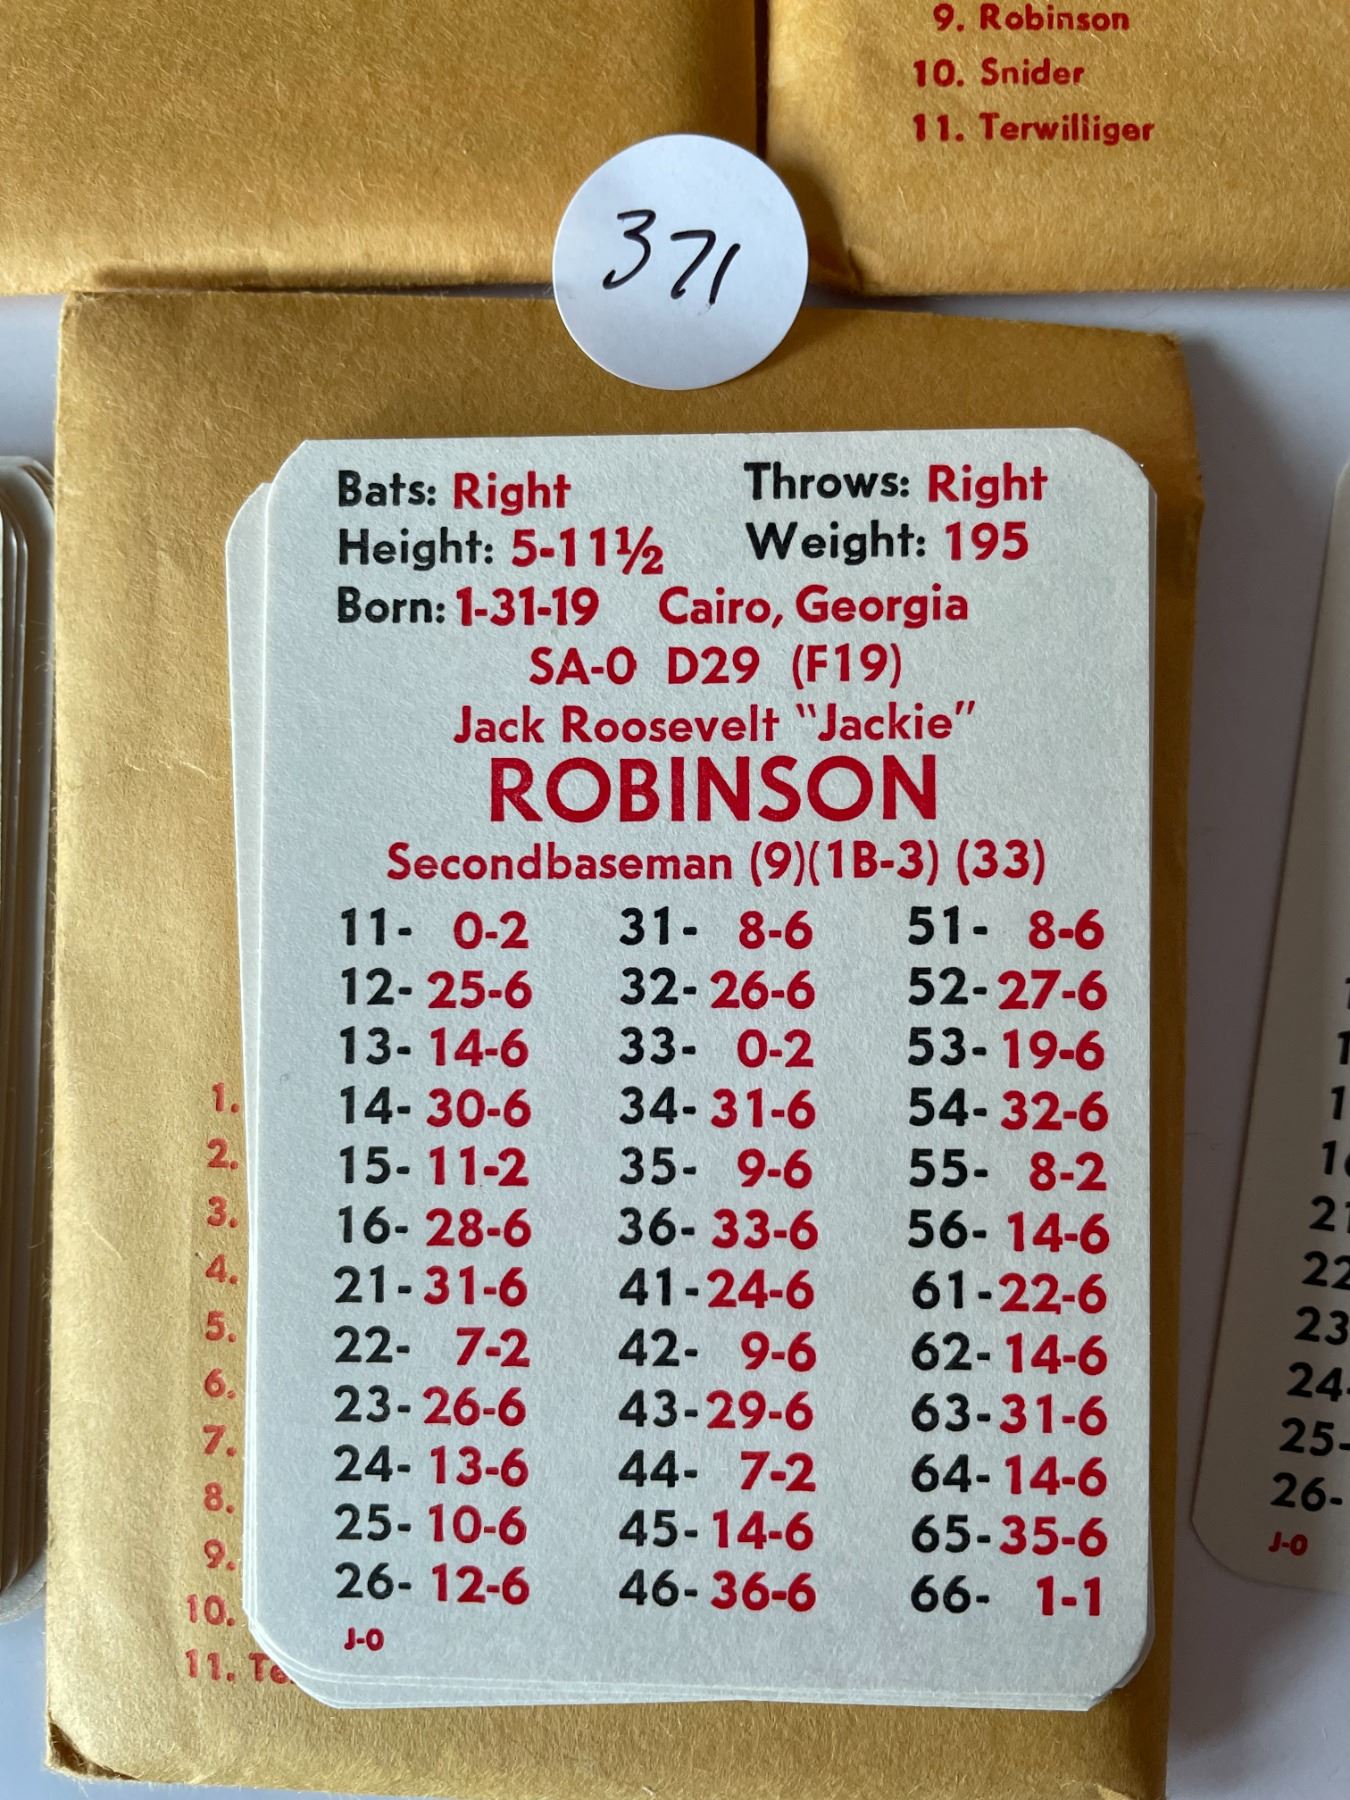 9. Robinson
10. Snider
11. Terwilliger
371
Bats: Right Throws: Right
Height: 5-11½ Weight: 195
Born: 1-31-19 Cairo, Georgia
SA-0 D29 (F19)
Jack Roosevelt "Jackie"
ROBINSON
Secondbaseman (9)(1B-3) (33)
11- 0-2 31- 8-6 51- 8-6
12- 25-6 32- 26-6 52- 27-6
13- 14-6 33- 0-2 53- 19-6
14- 30-6 34- 31-6 54- 32-6
15- 11-2 35- 9-6 55- 8-2
16- 28-6 36- 33-6 56- 14-6
21- 31-6 41- 24-6 61- 22-6
22- 7-2 42- 9-6 62- 14-6
23- 26-6 43- 29-6 63- 31-6
24- 13-6 44- 7-2 64- 14-6
25- 10-6 45- 14-6 65- 35-6
26- 12-6 46- 36-6 66- 1-1
J-0
1.
2.
3.
4.
5.
6.
7.
8.
9.
10.
11. Te
21
22
23
24-
25-
26-
J-0